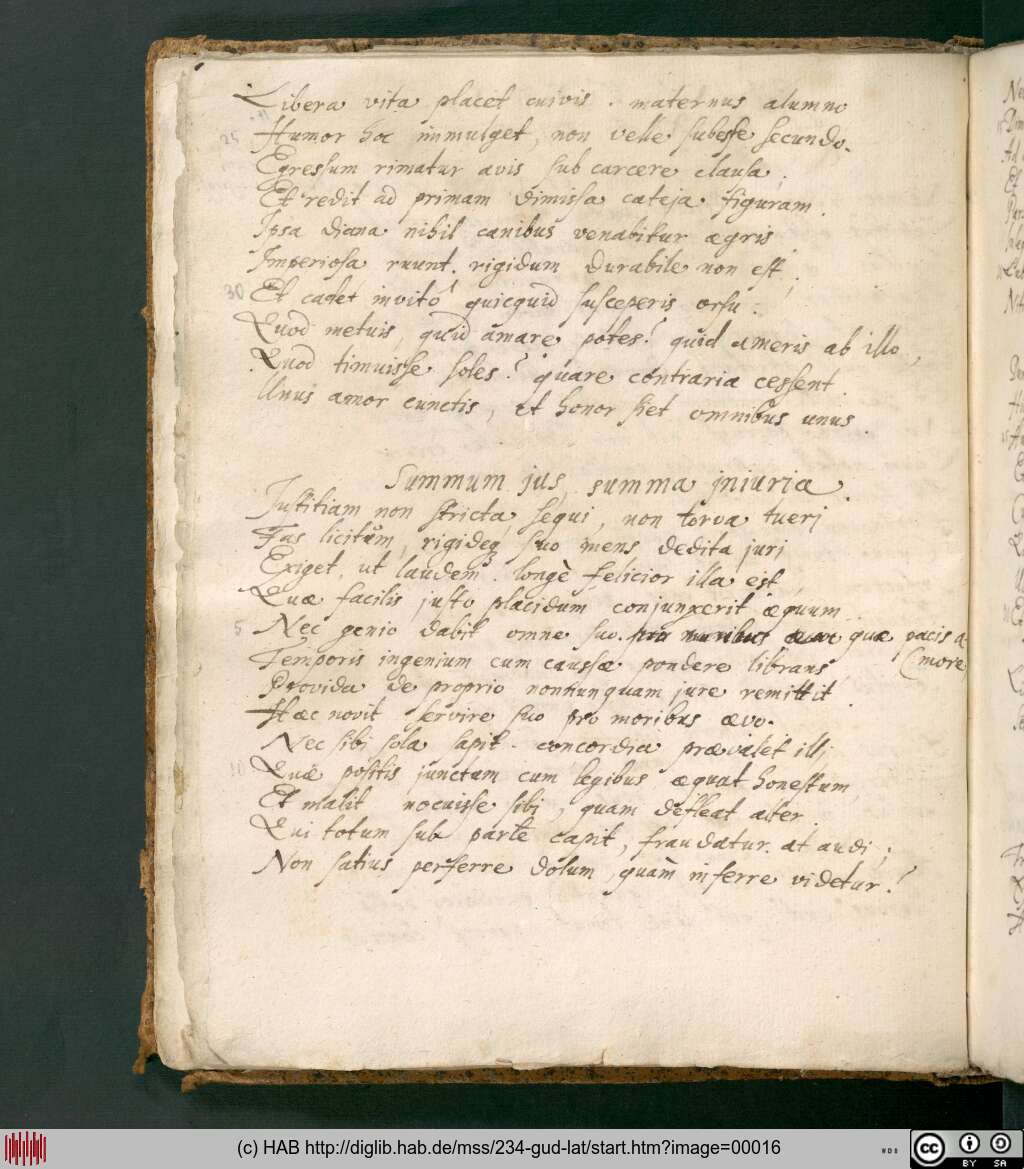 Libera vita placet cuivis. maternus alumno
25 Humor hoc immulget, non velle subesse secundo.
Egressum rimatur avis sub carcere clausa;
Et redit ad primam dimissa cateja figuram.
Ipsa diana nihil canibus venabitur ægris
Imperiosa ruunt. rigidum durabile non est;
30 Et cadet invito quicquid susceperis orsu.
Quod metuis, quid amare potes? quid ameris ab illo,
Quod timuisse soles? quare contraria cessent.
Unus amor cunctis, et honor siet omnibus unus.
Summum jus, summa jniuria.
Justitiam non stricta sequi, non torva tueri
Fas licitum, rigideq suo mens dedita juri
Exiget, ut laudem. longè felicior illa est,
Quæ facilis justo placidum conjunxerit æquum.
5 Nec genio dabit omne suo. quæ pacis a-
(more,
Temporis ingenium cum caussæ pondere librans
Provida de proprio nonnunquam jure remittit.
Hæc novit servire suo pro moribus ævo.
Nec sibi sola sapit. concordia prævalet illi,
10 Quæ positis junctam cum legibus æquat honestum
Et malit nocuisse sibi, quam defleat alter.
Qui totum sub parte capit, fraudatur. at audi;
Non satius perferre dolum, quàm inferre videtur?
(c) HAB http://diglib.hab.de/mss/234-gud-lat/start.htm?image=00016
cc
BY SA